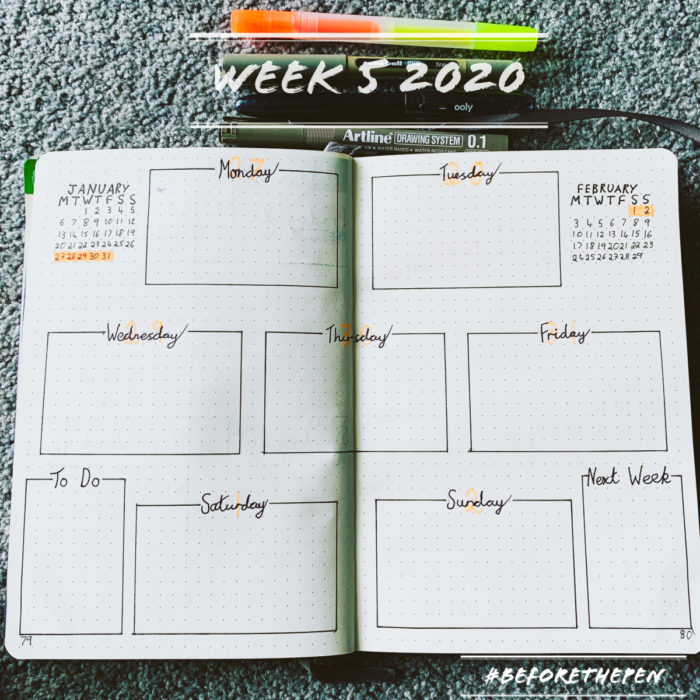 WEEK 5 2020
fine
ooly
Artline DRAWING SYSTEM 0.1
WATER BASED • WATER RESISTANT
JANUARY
M T W T F S S
1 2 3 4 5
6 7 8 9 10 11 12
13 14 15 16 17 18 19
20 21 22 23 24 25 26
27 28 29 30 31
27
Monday
28
Tuesday
FEBRUARY
M T W T F S S
1 2
3 4 5 6 7 8 9
10 11 12 13 14 15 16
17 18 19 20 21 22 23
24 25 26 27 28 29
29
Wednesday
30
Thursday
31
Friday
To Do
1
Saturday
2
Sunday
Next Week
79
80
#BEFORETHEPEN